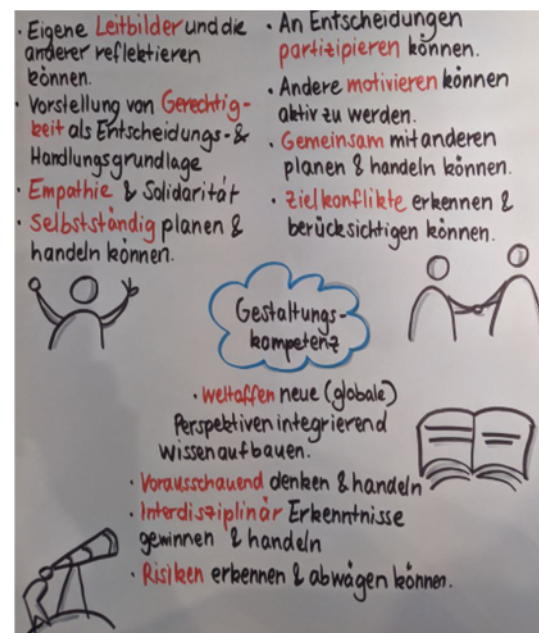 · Eigene Leitbilder und die
anderer reflektieren
können.
· Vorstellung von Gerechtig-
keit als Entscheidungs- &
Handlungsgrundlage
· Empathie & Solidarität
· Selbstständig planen &
handeln können.
· An Entscheidungen
partizipieren können.
· Andere motivieren können
aktiv zu werden.
· Gemeinsam mit anderen
planen & handeln können.
· Zielkonflikte erkennen &
berücksichtigen können.
Gestaltungs-
kompetenz
· Weltoffen neue (globale)
Perspektiven integrierend
Wissen aufbauen.
· Vorausschauend denken & handeln
· Interdisziplinär Erkenntnisse
gewinnen & handeln
· Risiken erkennen & abwägen können.